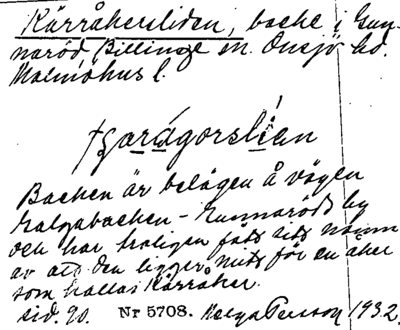 Kärråkersliden, backe i Gun-
naröd, Billinge sn. Onsjö hd.
Malmöhus l.
Backen är belägen å vägen
Galgabacken - Gunnaröds by
och har troligen fått sitt namn
av att den ligger mitt för en åker
som kallas Kärråker.
sid. 90. Nr 5708. Helga Persson 1932.